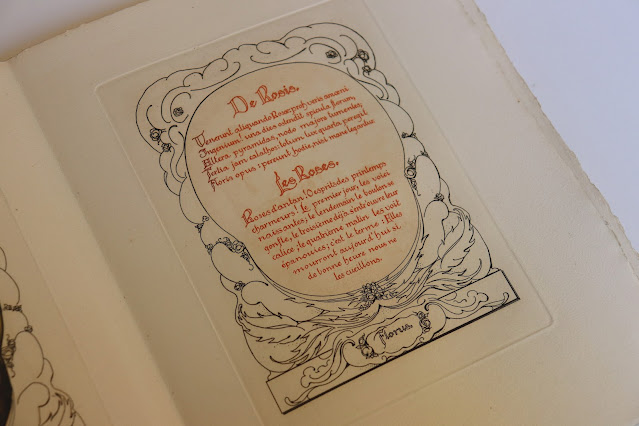 De Rosis.
Venerunt aliquando Rosæ: proh, veris amœni
Ingenium! una dies ostendit spicula florum,
Altera pyramidas, nodo majore tumentes,
Tertia jam calathos: totum lux quarta peregit
Floris opus: pereunt hodie, nisi mane legantur.
Les Roses.
Roses d'antan! O esprits des printemps
charmeurs! Le premier jour, les voici
naissantes; le lendemain le bouton se
gonfle, le troisième déjà s'entr'ouvre leur
calice; le quatrième matin les voit
épanouies; c'est le terme: Elles
mourront aujourd'hui si
de bonne heure nous ne
les cueillons.
Florus.